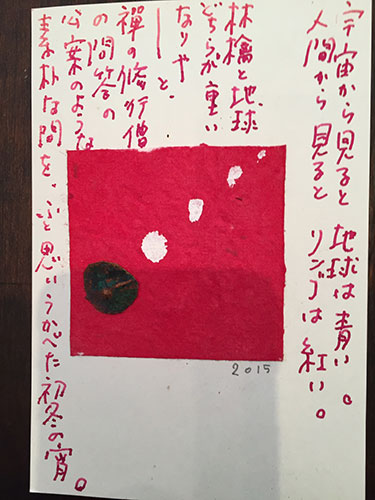 宇宙から見ると 地球は青い。
人間から見ると リンゴは紅い。
林檎と地球
どちらが重い
なりや
── と、
禪の修行僧
の問答の
公案のような
素朴な問を、ふと思いうかべた初冬の宵。
2015